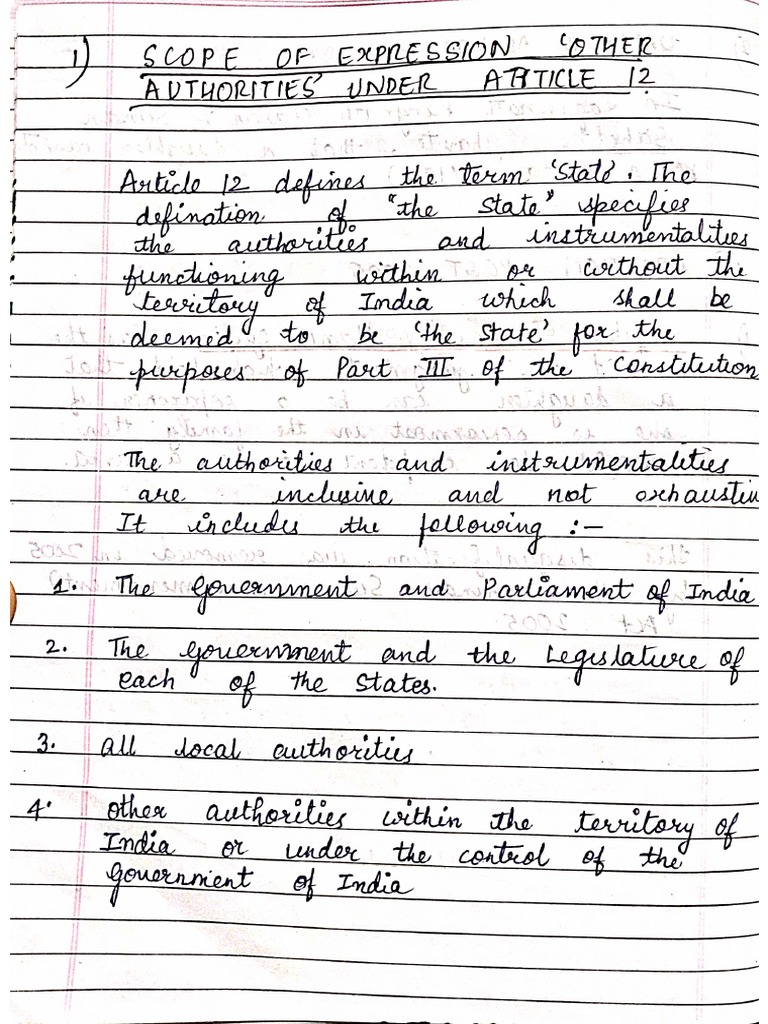 1) SCOPE OF EXPRESSION 'OTHER
AUTHORITIES' UNDER ARTICLE 12
Article 12 defines the term 'State'. The
defination of "the State" specifies
the authorities and instrumentalities
functioning within or without the
territory of India which shall be
deemed to be 'the State' for the
purposes of Part III of the Constitution
The authorities and instrumentalities
are inclusive and not exhaustiv
It includes the following :-
1. The Government and Parliament of India
2. The government and the Legislature of
each of the States.
3. all local authorities
4. other authorities within the territory of
India or under the control of the
government of India